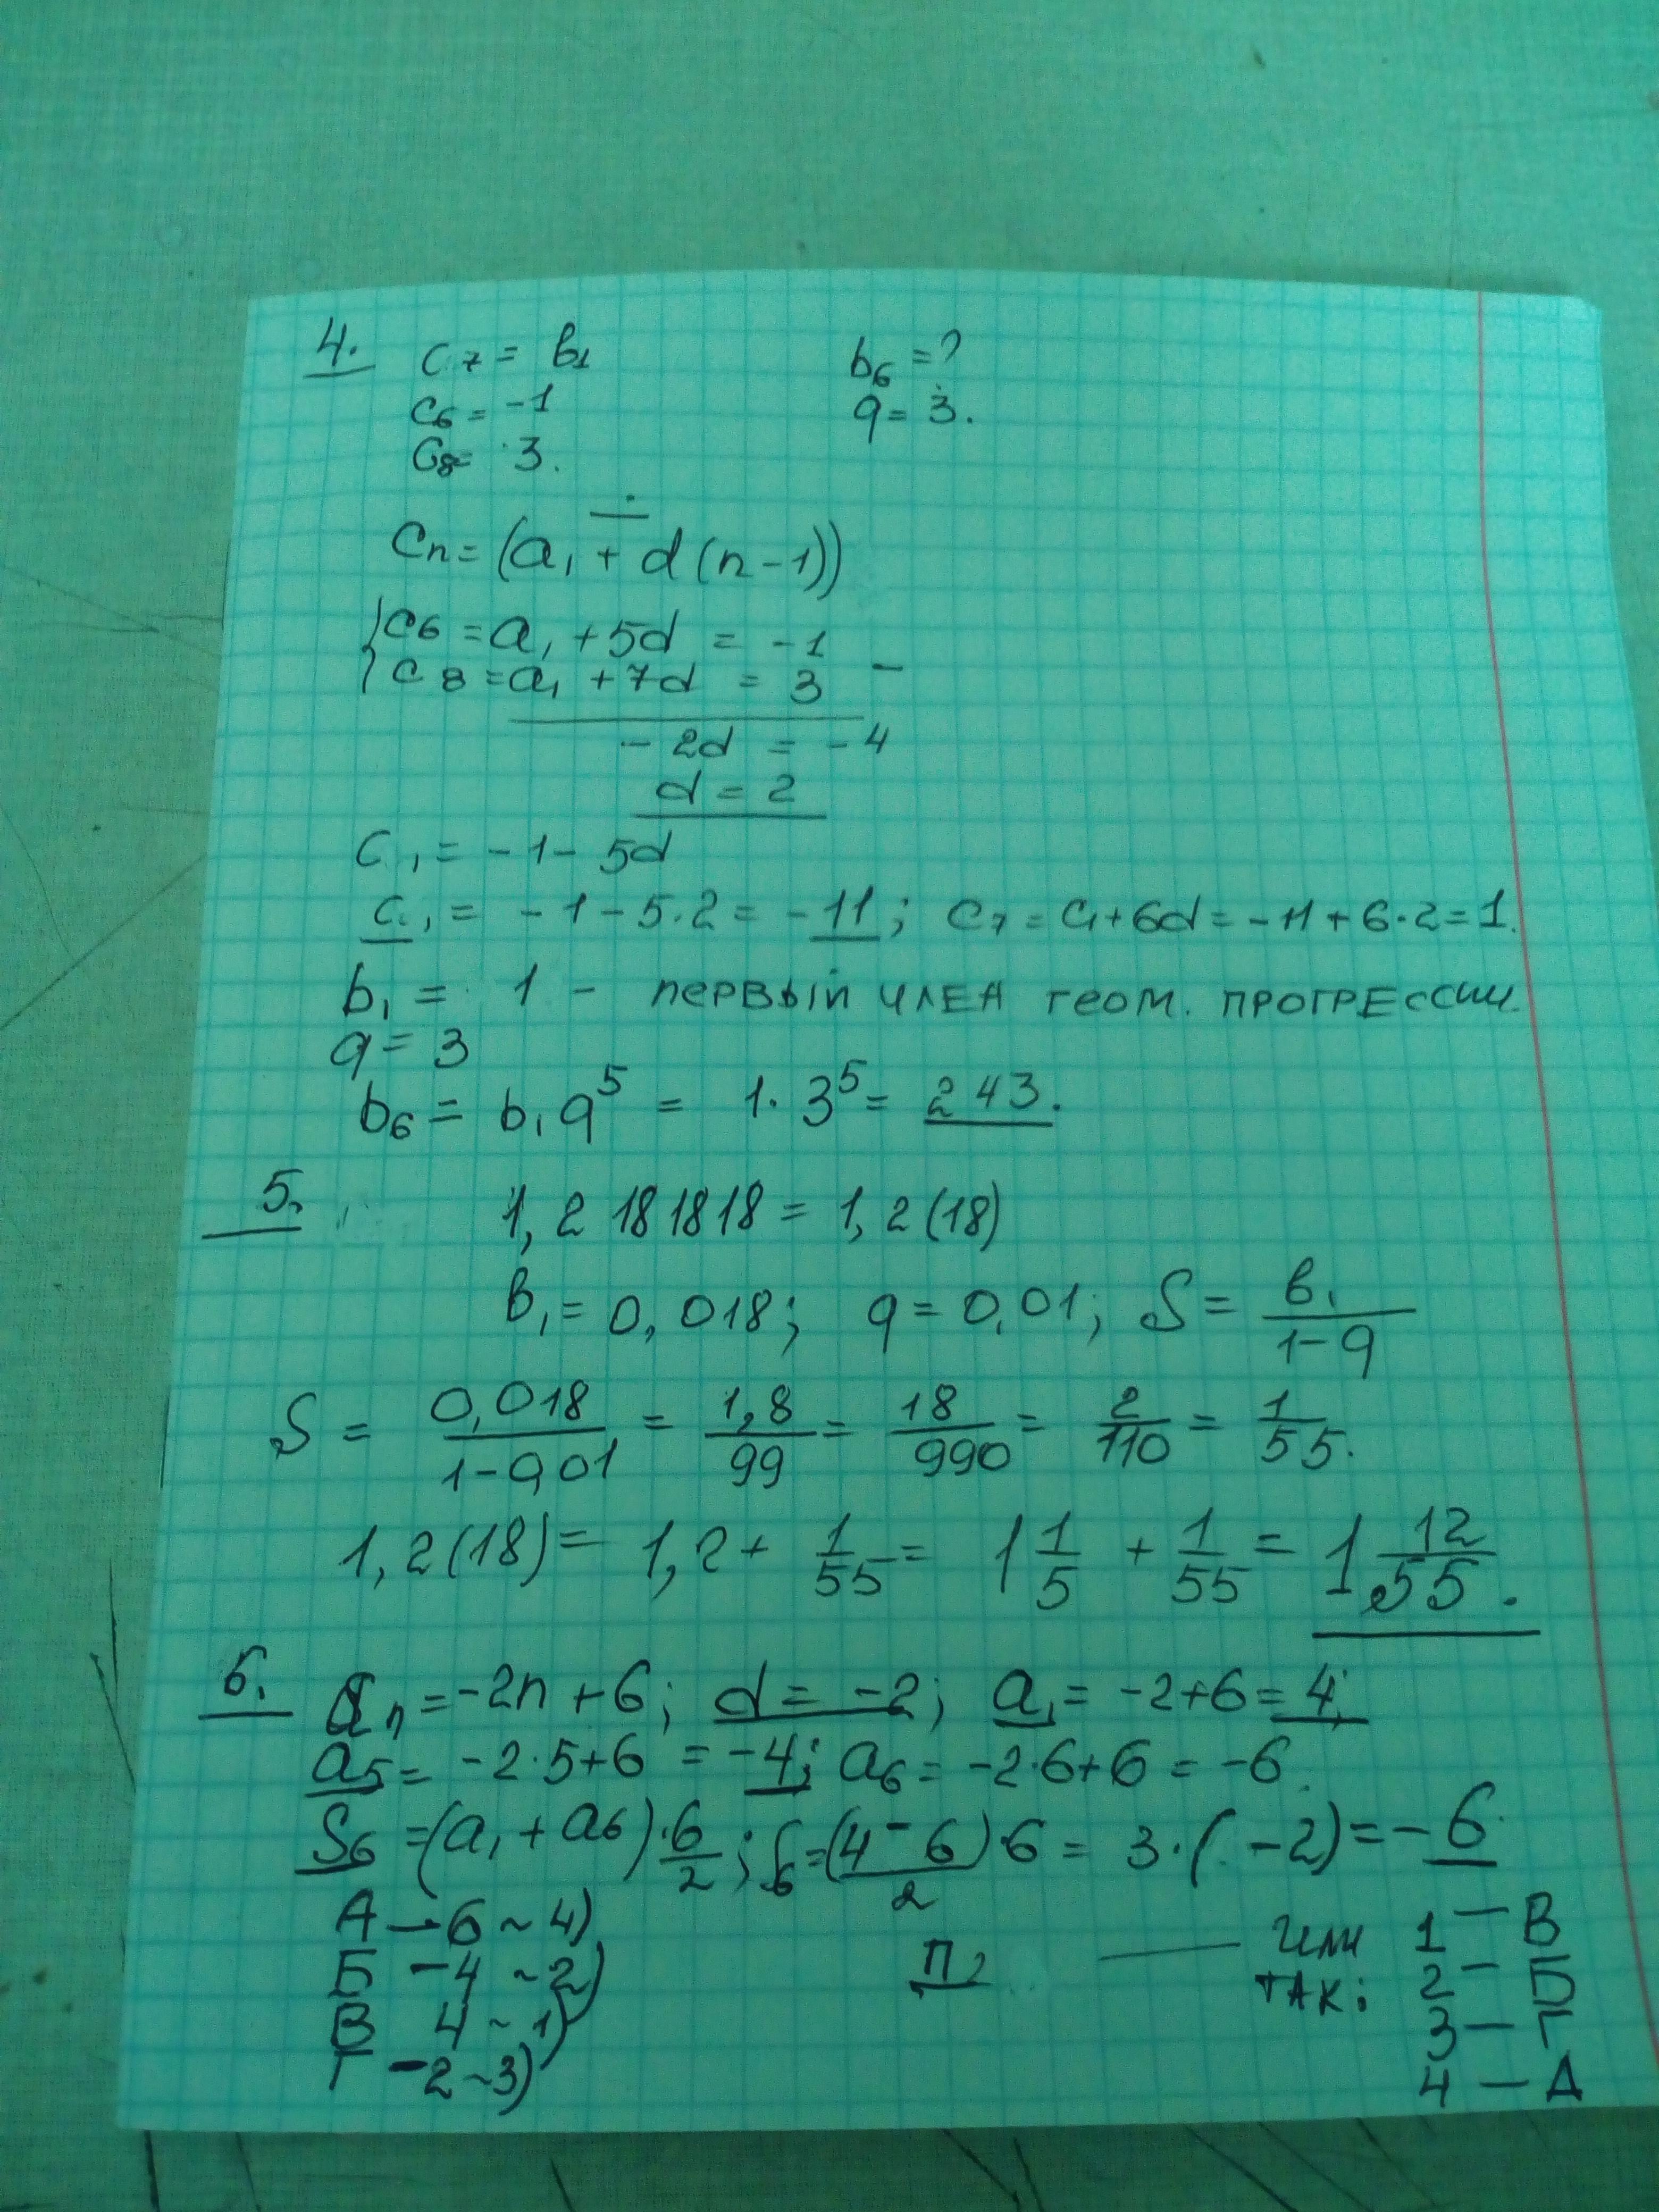 4. c₇ = в₁ b₆ = ?
c₆ = -1 q = 3.
c₈ = 3.
cn = (a₁ + d(n-1))
{c₆ = a₁ + 5d = -1
{c₈ = a₁ + 7d = 3 -
- 2d = -4
d = 2
c₁ = -1 - 5d
c₁ = -1 - 5·2 = -11; c₇ = c₁ + 6d = -11 + 6·2 = 1.
b₁ = 1 - первый член геом. прогрессии.
q = 3
b₆ = b₁q⁵ = 1·3⁵ = 243.
5. 1,2 18 18 18 = 1,2(18)
в₁ = 0,018; q = 0,01; S = в₁/(1-q)
S = 0,018/(1-0,01) = 1,8/99 = 18/990 = 2/110 = 1/55.
1,2(18) = 1,2 + 1/55 = 1 1/5 + 1/55 = 1 12/55.
6. an = -2n + 6; d = -2; a₁ = -2+6 = 4;
a₅ = -2·5+6 = -4; a₆ = -2·6+6 = -6.
S₆ = (a₁ + a₆)·6/2; S₆ = (4-6)/2·6 = 3·(-2) = -6.
А -6 ~ 4)
Б -4 ~ 2)
В 4 ~ 1)
Г -2 ~ 3)
или так:
1 - В
2 - Б
3 - Г
4 - А